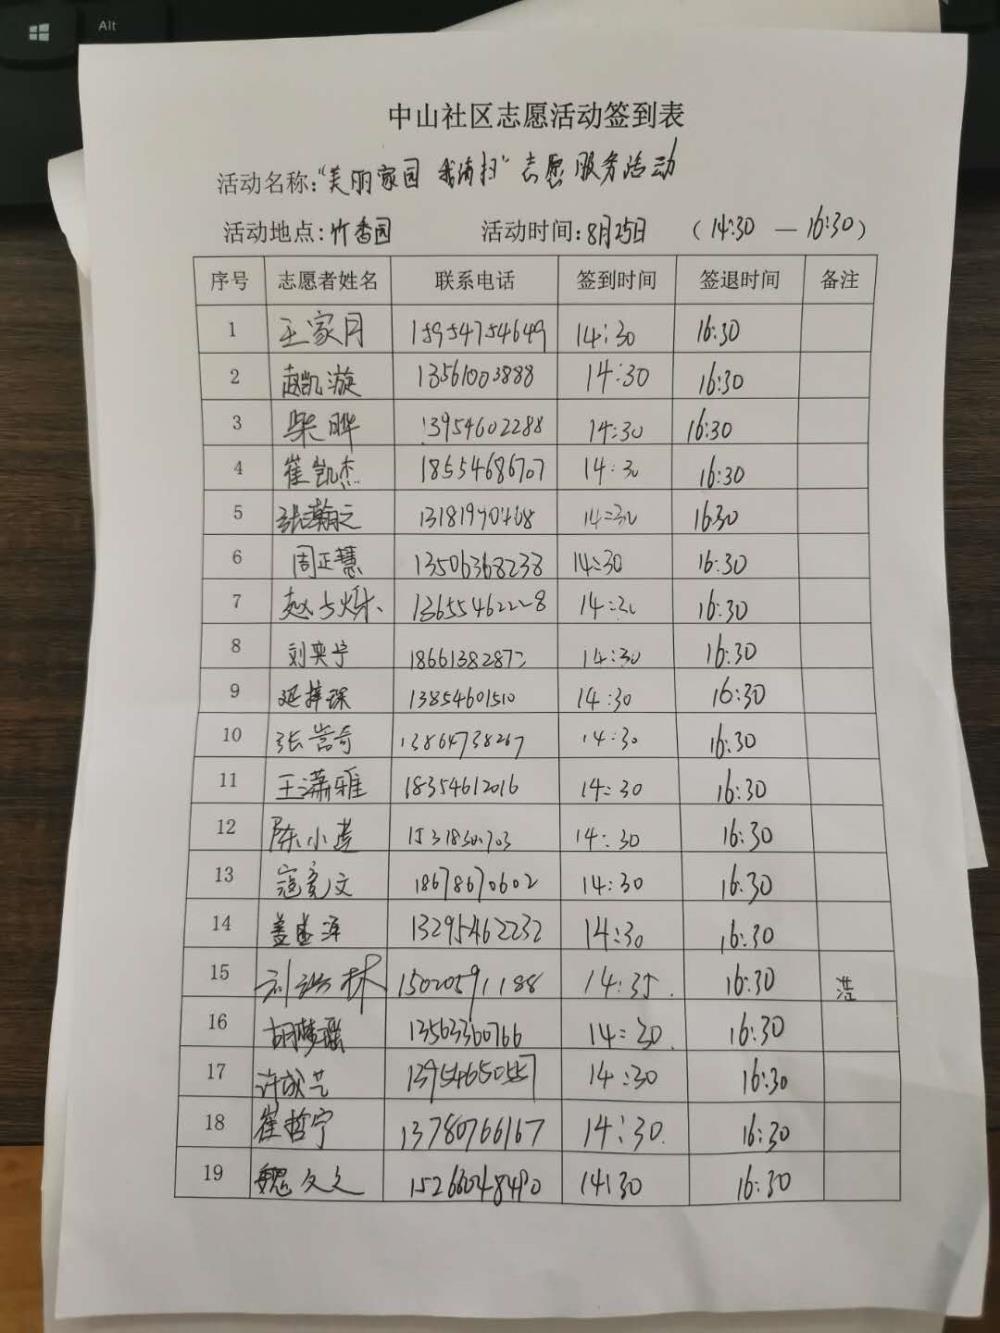 Alt
中山社区志愿活动签到表
活动名称:“美丽家园 我清扫”志愿服务活动
活动地点:竹香园 活动时间:8月25日 (14:30 — 16:30)
序号 志愿者姓名 联系电话 签到时间 签退时间 备注
1 王家月 15954754649 14:30 16:30
2 赵凯漩 13561003888 14:30 16:30
3 柴晔 13954602288 14:30 16:30
4 崔凯杰 18554686707 14:30 16:30
5 张瀚之 14:30 1630
6 周正慧 13506368238 14:30 16:30
7 14:30 16:30
8 刘奕宁 14:30 16:30
9 延梓琛 13854601510 14:30 16:30
10 张嵩奇 13864738267 14:30 16:30
11 王潇雅 18354612016 14:30 16:30
12 陈小莲 14:30 16:30
13 寇竟文 18678670602 14:30 16:30
14 盖盛泽 13295462232 14:30 16:30
15 刘浩林 15020591188 14:35. 16:30 浩
16 胡梦瑶 13563360766 14:30. 16:30
17 14:30 16:30
18 崔哲宁 13780766167 14:30. 16:30
19 魏文文 15266048490 14:30 16:30